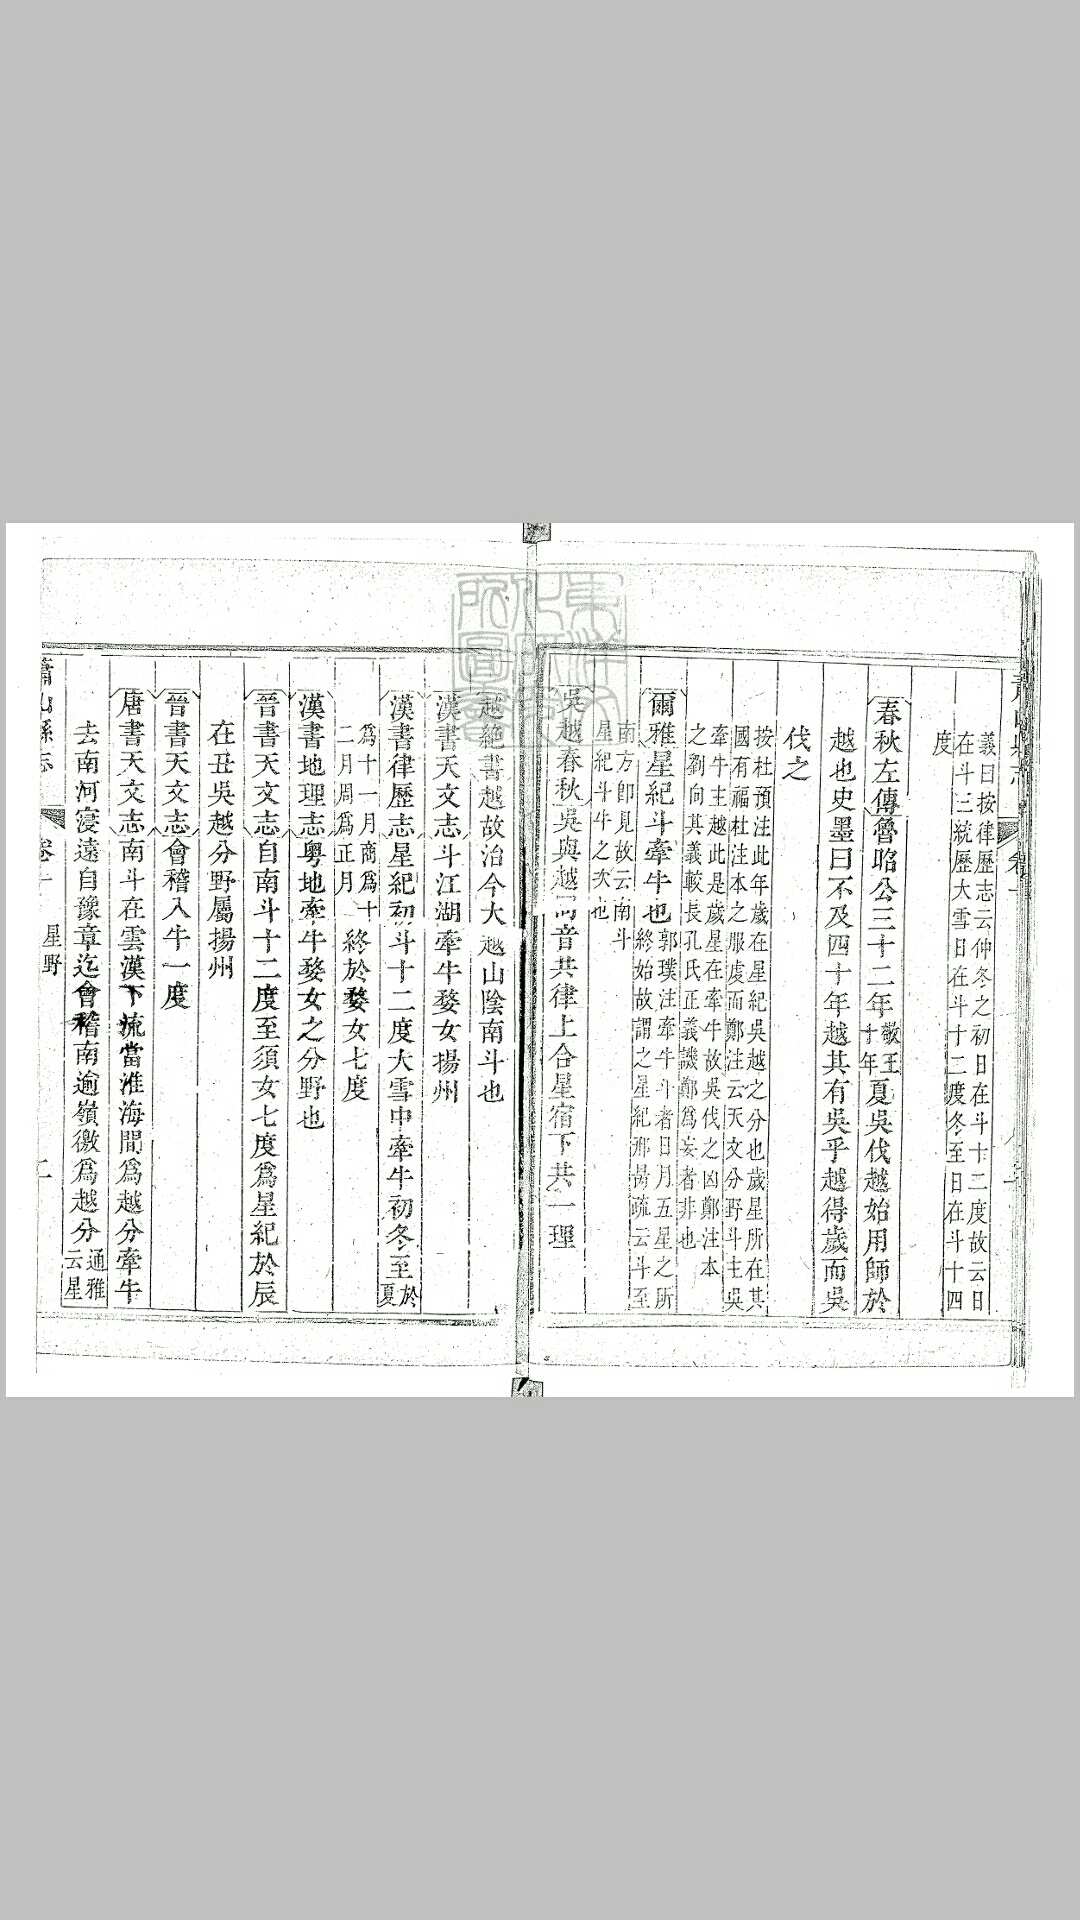 義曰按律歷志云仲冬之初日在斗十二度故云日
在斗三統歷大雪日在斗十二度冬至日在斗十四
度
春秋左傳魯昭公三十二年敬王十年夏吳伐越始用師於
越也史墨曰不及四十年越其有吳乎越得歲而吳
伐之
按杜預注此年歲在星紀吳越之分也歲星所在其
國有福杜注本之服虔而鄭注云天文分野斗主吳
牽牛主越此是歲星在牽牛故吳伐之凶鄭注本
之劉向其義較長孔氏正義譏鄭爲妄者非也
爾雅星紀斗牽牛也郭璞注牽牛斗者日月五星之所
終始故謂之星紀邢昺疏云斗至
南方卽見故云南斗
星紀斗牛之次也
吳越春秋吳與越同音共律上合星宿下共一理
越絶書越故治今大越山陰南斗也
漢書天文志斗江湖牽牛婺女揚州
漢書律歷志星紀初斗十二度大雪中牽牛初冬至於夏
爲十一月商爲十
二月周爲正月
終於婺女七度
漢書地理志粵地牽牛婺女之分野也
晉書天文志自南斗十二度至須女七度爲星紀於辰
在丑吳越分野屬揚州
晉書天文志會稽入牛一度
唐書天文志南斗在雲漢下流當淮海間爲越分牽牛
去南河寖遠自豫章迄會稽南逾嶺徼爲越分通雅云星
蕭山縣志
卷十
星野
二